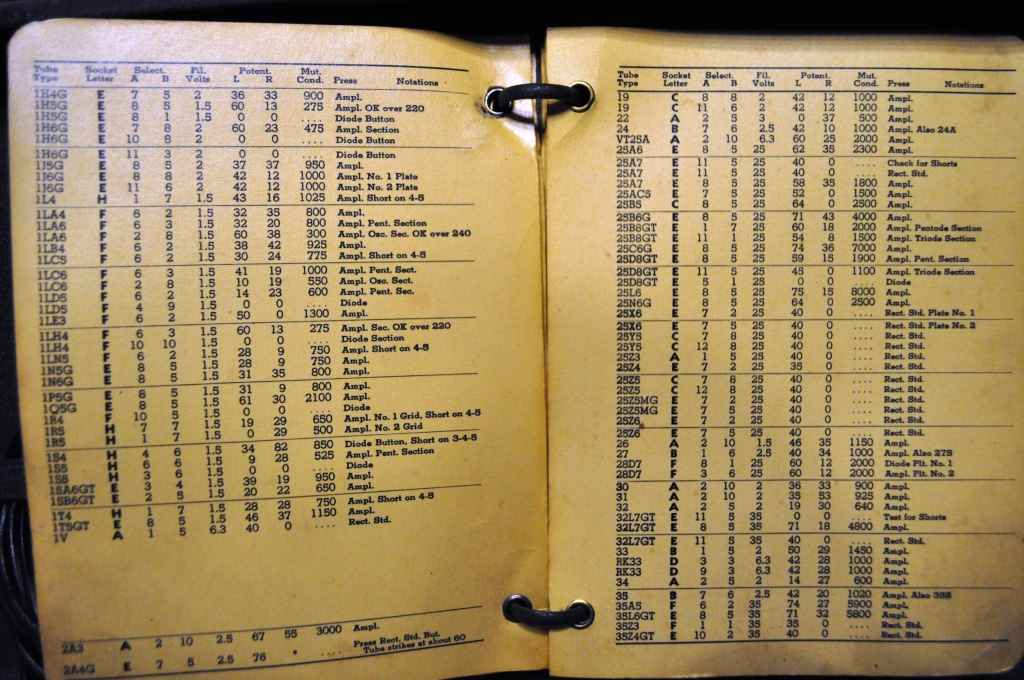 Tube Type Socket Letter Select. A B Fil. Volts Potent. L R Mut. Cond. Press Notations
1H4G E 7 5 2 36 33 900 Ampl.
1H5G E 8 5 1.5 60 13 275 Ampl. OK over 220
1H5G E 8 1 1.5 0 0 .... Diode Button
1H6G E 7 8 2 60 23 475 Ampl. Section
1H6G E 10 8 2 0 0 .... Diode Button
1H6G E 11 3 2 0 0 .... Diode Button
1J5G E 8 5 2 37 37 950 Ampl.
1J6G E 8 8 2 42 12 1000 Ampl. No. 1 Plate
1J6G E 11 6 2 42 12 1000 Ampl. No. 2 Plate
1L4 H 1 7 1.5 43 16 1025 Ampl. Short on 4-5
1LA4 F 6 2 1.5 32 35 800 Ampl.
1LA6 F 6 3 1.5 32 20 800 Ampl. Pent. Section
1LA6 F 2 8 1.5 60 38 300 Ampl. Osc. Sec. OK over 240
1LB4 F 6 2 1.5 38 42 925 Ampl.
1LC5 F 6 2 1.5 30 24 775 Ampl. Short on 4-5
1LC6 F 6 3 1.5 41 19 1000 Ampl. Pent. Sect.
1LC6 F 2 8 1.5 10 19 550 Ampl. Osc. Sect.
1LD5 F 6 2 1.5 14 23 600 Ampl. Pent. Sec.
1LD5 F 4 9 1.5 0 0 .... Diode
1LE3 F 6 2 1.5 50 0 1300 Ampl.
1LH4 F 6 3 1.5 60 13 275 Ampl. Sec. OK over 220
1LH4 F 10 10 1.5 0 0 .... Diode Section
1LN5 F 6 2 1.5 28 9 750 Ampl. Short on 4-5
1N5G E 8 5 1.5 28 9 750 Ampl.
1N6G E 8 5 1.5 31 35 800 Ampl.
1P5G E 8 5 1.5 31 9 800 Ampl.
1Q5G E 8 5 1.5 61 30 2100 Ampl.
1R4 F 10 5 1.5 0 0 .... Diode
1R5 H 7 7 1.5 19 29 650 Ampl. No. 1 Grid, Short on 4-5
1R5 H 1 7 1.5 0 29 500 Ampl. No. 2 Grid
1S4 H 4 6 1.5 34 82 850 Diode Button, Short on 3-4-5
1S5 H 6 6 1.5 9 28 525 Ampl. Pent. Section
1S5 H 3 6 1.5 0 0 .... Diode
1SA6GT E 3 4 1.5 39 19 950 Ampl.
1SB6GT E 2 5 1.5 20 22 650 Ampl.
1T4 H 1 7 1.5 28 28 750 Ampl. Short on 4-5
1T5GT E 8 5 1.5 46 37 1150 Ampl.
1V A 1 5 6.3 40 0 .... Rect. Std.
2A3 A 2 10 2.5 67 55 3000 Ampl.
2A4G E 7 5 2.5 76 * .... Press Rect. Std. But.
Tube strikes at about 60
Tube Type Socket Letter Select. A B Fil. Volts Potent. L R Mut. Cond. Press Notations
19 C 8 8 2 42 12 1000 Ampl.
19 C 11 6 2 42 12 1000 Ampl.
22 A 2 5 3 0 37 500 Ampl.
24 B 7 6 2.5 42 10 1000 Ampl. Also 24A
VT25A A 2 10 6.3 60 25 2000 Ampl.
25A6 E 8 5 25 62 35 2300 Ampl.
25A7 E 11 5 25 40 0 .... Check for Shorts
25A7 E 11 5 25 40 0 .... Rect. Std.
25A7 E 8 5 25 58 35 1800 Ampl.
25AC5 E 7 5 25 52 0 1500 Ampl.
25B5 C 8 5 25 64 0 2500 Ampl.
25B6G E 8 5 25 71 43 4000 Ampl.
25B8GT E 1 7 25 60 18 2000 Ampl. Pentode Section
25B8GT E 11 1 25 54 8 1500 Ampl. Triode Section
25C6G E 8 5 25 74 36 7000 Ampl.
25D8GT E 8 5 25 59 15 1900 Ampl. Pent. Section
25D8GT E 11 5 25 45 0 1100 Ampl. Triode Section
25D8GT E 5 1 25 0 0 .... Diode
25L6 E 8 5 25 75 15 8000 Ampl.
25N6G E 8 5 25 64 0 2500 Ampl.
25X6 E 7 2 25 40 0 .... Rect. Std. Plate No. 1
25X6 E 7 5 25 40 0 .... Rect. Std. Plate No. 2
25Y5 C 7 8 25 40 0 .... Rect. Std.
25Y5 C 12 8 25 40 0 .... Rect. Std.
25Z3 A 1 5 25 40 0 .... Rect. Std.
25Z4 E 7 2 25 35 0 .... Rect. Std.
25Z5 C 7 8 25 40 0 .... Rect. Std.
25Z5 C 12 8 25 40 0 .... Rect. Std.
25Z5MG E 7 2 25 40 0 .... Rect. Std.
25Z5MG E 7 5 25 40 0 .... Rect. Std.
25Z6 E 7 2 25 40 0 .... Rect. Std.
25Z6 E 7 5 25 40 0 .... Rect. Std.
26 A 2 10 1.5 46 35 1150 Ampl.
27 B 1 6 2.5 40 34 1000 Ampl. Also 27S
28D7 F 8 1 25 60 12 2000 Diode Plt. No. 1
28D7 F 3 6 25 60 12 2000 Ampl. Plt. No. 2
30 A 2 10 2 36 33 900 Ampl.
31 A 2 10 2 35 53 925 Ampl.
32 A 2 5 2 19 30 640 Ampl.
32L7GT E 11 5 35 0 0 .... Test for Shorts
32L7GT E 8 5 35 71 18 4800 Ampl.
32L7GT E 11 5 35 40 0 .... Rect. Std.
33 B 1 5 2 50 29 1450 Ampl.
RK33 D 3 3 6.3 42 28 1000 Ampl.
RK33 D 9 3 6.3 42 28 1000 Ampl.
34 A 2 5 2 14 27 600 Ampl.
35 B 7 6 2.5 42 20 1020 Ampl. Also 35S
35A5 F 6 2 35 74 27 5900 Ampl.
35L6GT E 8 5 35 71 32 5800 Ampl.
35Z3 F 1 1 35 35 0 .... Rect. Std.
35Z4GT E 10 2 35 40 0 .... Rect. Std.